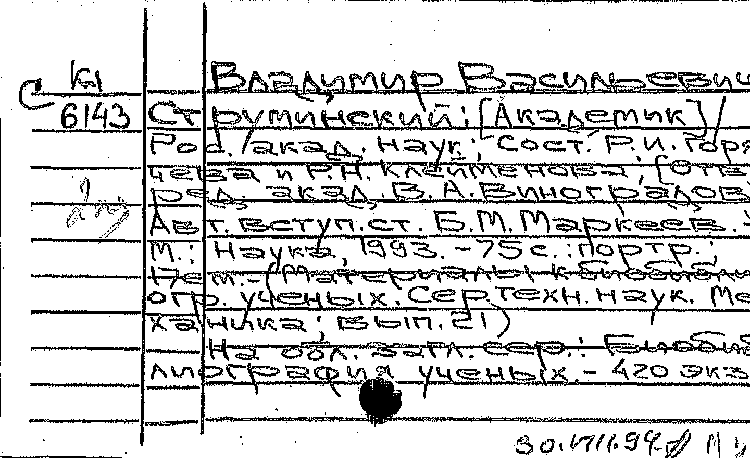 К1
Владимир Васильевич
С 6143 Струминский: [Академик] /
Рос. акад. наук; Сост. Р.И. Горя
чева и Р.Н. Клейменова; [Отв.
ред. акад. В.А. Виноградов
Авт. вступ. ст. Б.М. Маркеев.
М.: Наука, 1993. - 75 с.: портр.;
17 см. - (Материалы к биобибли
огр. ученых. Сер. техн. наук. Ме
ханика; вып. 21)
На обл. загл. сер.: Биобиб
лиография ученых. - 420 экз
30.VIII.94